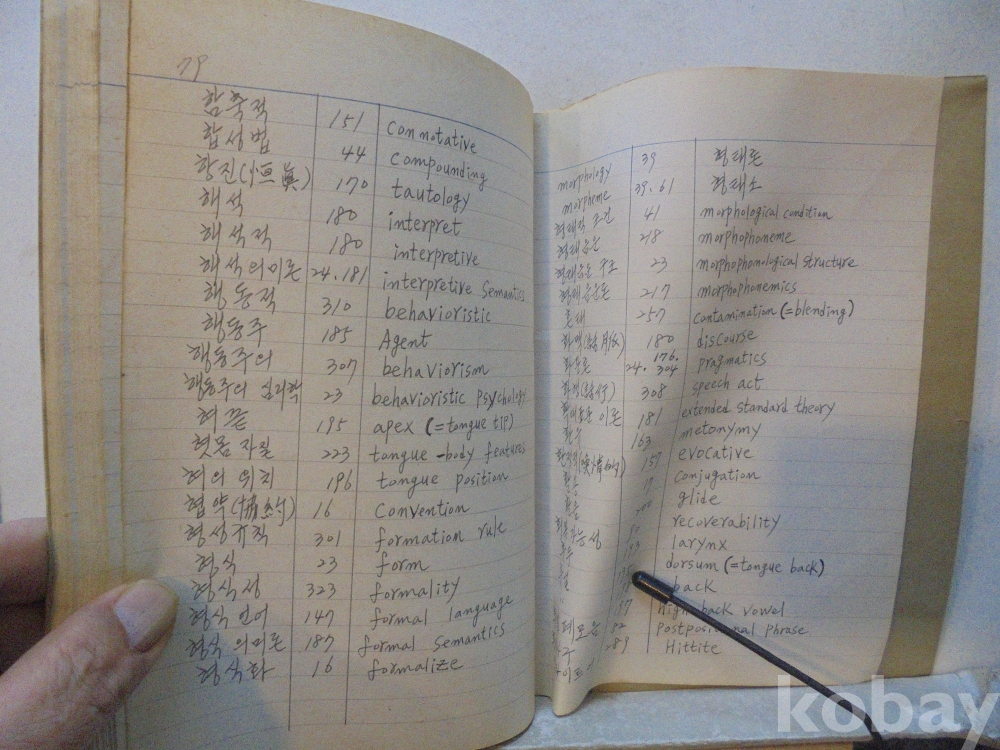 79
함축적 151 connotative
합성법 44 compounding
항진(恒眞) 170 tautology
해석 180 interpret
해석적 180 interpretive
해석의미론 24.181 interpretive semantics
행동적 310 behavioristic
행동주 185 Agent
행동주의 307 behaviorism
행동주의 심리학 23 behavioristic psychology
혀끝 195 apex (=tongue tip)
혓몸 자질 223 tongue-body features
혀의 위치 196 tongue position
협약(協約) 16 convention
형성규칙 301 formation rule
형식 23 form
형식성 323 formality
형식 언어 147 formal language
형식 의미론 187 formal semantics
형식화 16 formalize
morphology 39 형태론
morpheme 39.61 형태소
형태적 조건 41 morphological condition
형태음운 218 morphophoneme
형태음운 구조 23 morphophonological structure
형태음운론 217 morphophonemics
혼태 257 contamination (=blending)
180 discourse
화용론 24. 176. 304 pragmatics
308 speech act
이론 181 extended standard theory
환유 163 metonymy
157 evocative
conjugation
glide
성 recoverability
larynx
dorsum (=tongue back)
back
17 high back vowel
82 postpositional phrase
289 Hittite
kobay